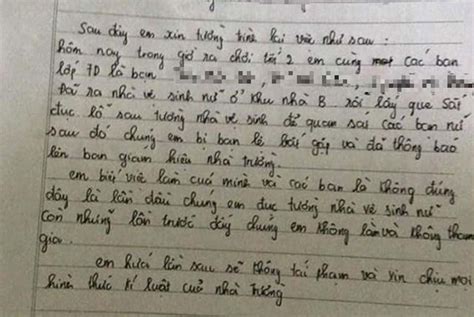 Sau đây em xin tường trình lại việc như sau:
hôm nay trong giờ ra chơi tiết 2 em cùng các bạn
lớp 7D là bạn
Đã ra nhà vệ sinh nữ ở khu nhà B rồi lấy que Sắt
đục lỗ sau tường nhà vệ sinh để quan sát các bạn nữ
sau đó chúng em bị bạn lê bắt gặp và đã thông báo
lên ban giám hiệu nhà trường.
em biết việc làm của mình và các bạn là không đúng
đây là lần đầu chúng em đục tường nhà vệ sinh nữ
Còn những lần trước đấy chúng em không làm và không tham
gia.
em hứa lần sau sẽ không tái phạm và xin chịu mọi
hình thức kỉ luật của nhà trường